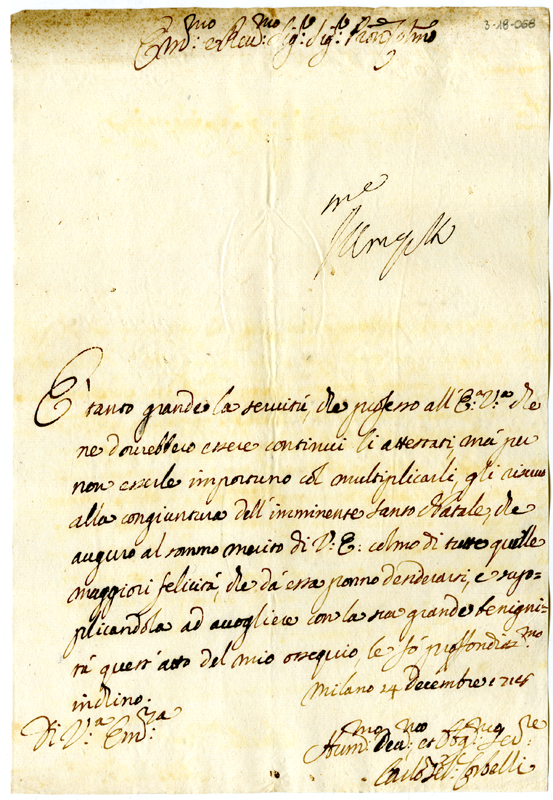 3-18-068
Em.mo e Reu.mo Sig.r Sig.r Pron. Colmo
È tanto grande la seruitù, che professo all' E.a V.a che
ne dourebbero essere continui li attestati, mà per
non esserle importuno col multiplicarli, gli riseruo
alla congiuntura dell' imminente Santo Natale, che
auguro al sommo merito di V. E. colmo di tutte quelle
maggiori felicità, che dà essa ponno desiderarsi, e sup-
plicandola ad accogliere con la sua grande benigni-
tà quest' atto del mio ossequio, le fò profondiss.mo
inchino.
Milano 24 Decembre
Di V.a Em.za
Hum.mo Deu.mo et Obg.mo Ser.re
Carlo Corbelli